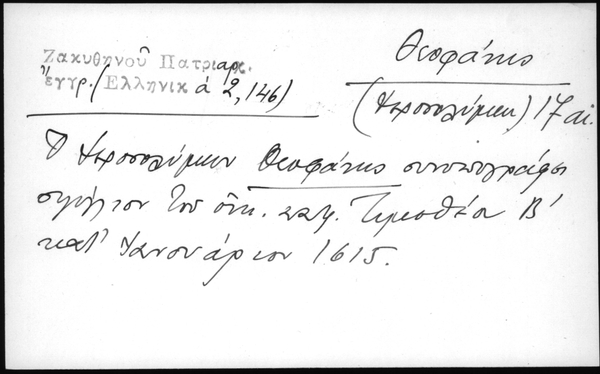 Ζακυθηνοῦ Πατριαρχ.
ἔγγρ. (Ἑλληνικὰ 2, 146)
Θεοφάνης
(Ἱεροσολύμων) 17 αἰ.
Ὁ Ἱεροσολύμων Θεοφάνης συνυπογράφει
σιγίλλιον τοῦ οἰκ. πατρ. Τιμοθέου Β΄
κατ' Ἰανουάριον 1615.